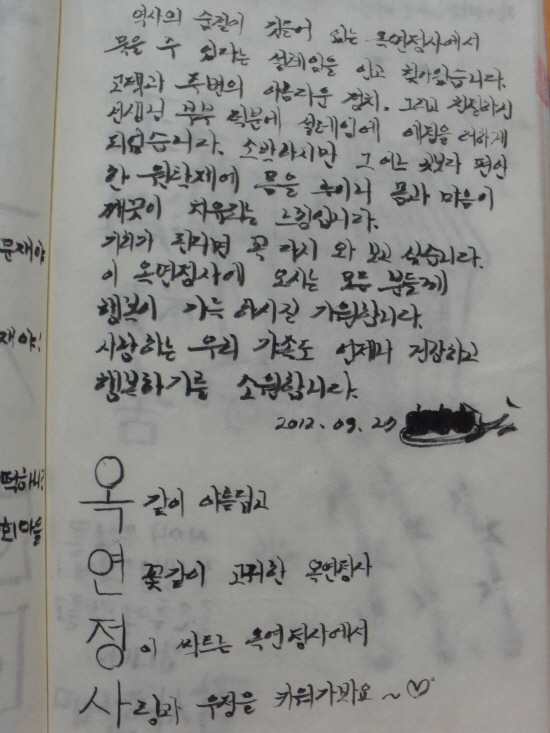 역사의 숨결이 깃들어 있는 옥연정사에서
묵을 수 있다는 설레임을 안고 찾아왔습니다.
고택과 주변의 아름다운 정취. 그리고 친절하신
선생님 부부 덕분에 설레임에 예정을 더하게
되었습니다. 소박하지만 그 어느 곳보다 편안
한 원락재에 몸을 누이니 몸과 마음이
깨끗이 치유되는 느낌입니다.
기회가 된다면 꼭 다시 와 보고 싶습니다.
이 옥연정사에 오시는 모든 분들께
행복이 가득 하시길 기원합니다.
사랑하는 우리 가족도 언제나 건강하고
행복하기를 소원합니다.
2012. 09. 23
옥 같이 아름답고
연 꽃같이 고귀한 옥연정사
정 이 싹트는 옥연정사에서
사랑과 우정을 키워가봐요 ~ ♡
문재야
재야!
회마을